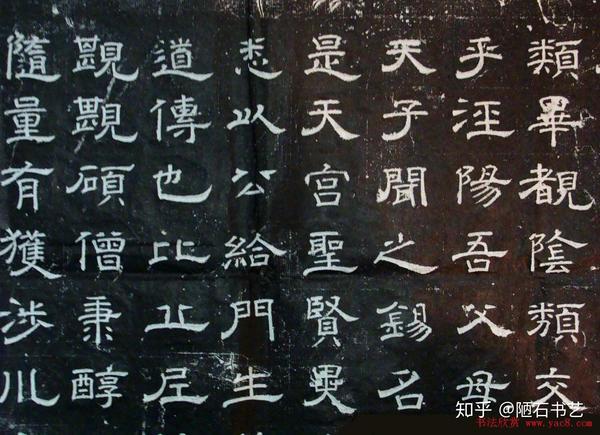 類畢覩陰類交
乎汪陽吾父母
天子聞之錫名
是天宮聖賢異
悉以公給門生
道傳也比丘尼
碩僧秉醇
隨量有獲涉川
知乎 @陋石书艺
书法欣赏 www.yac8.com